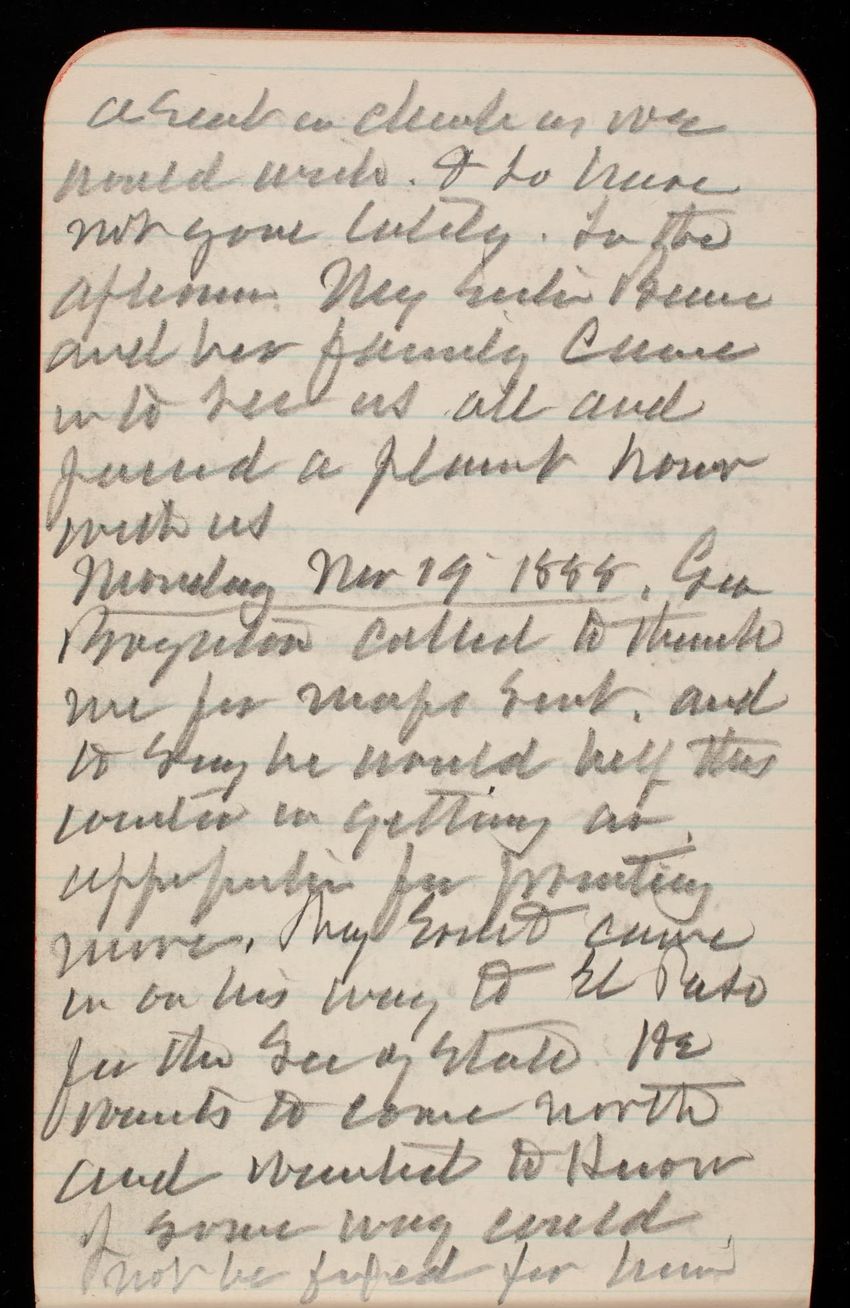 a seat in church as we
would wish. & so have
not gone lately. In the
afternoon My sister
and her family came
in to see us all and
passed a plsant hour
with us
Monday Nov 19 1888. Geo
called to thank
me for maps sent. and
to say he would help this
winter in getting an
appropriation for printing
more. Maj came
in on his way to El Paso
for the Sec of State He
wants to come north
and wanted to Know
if some way could
not be fixed for him